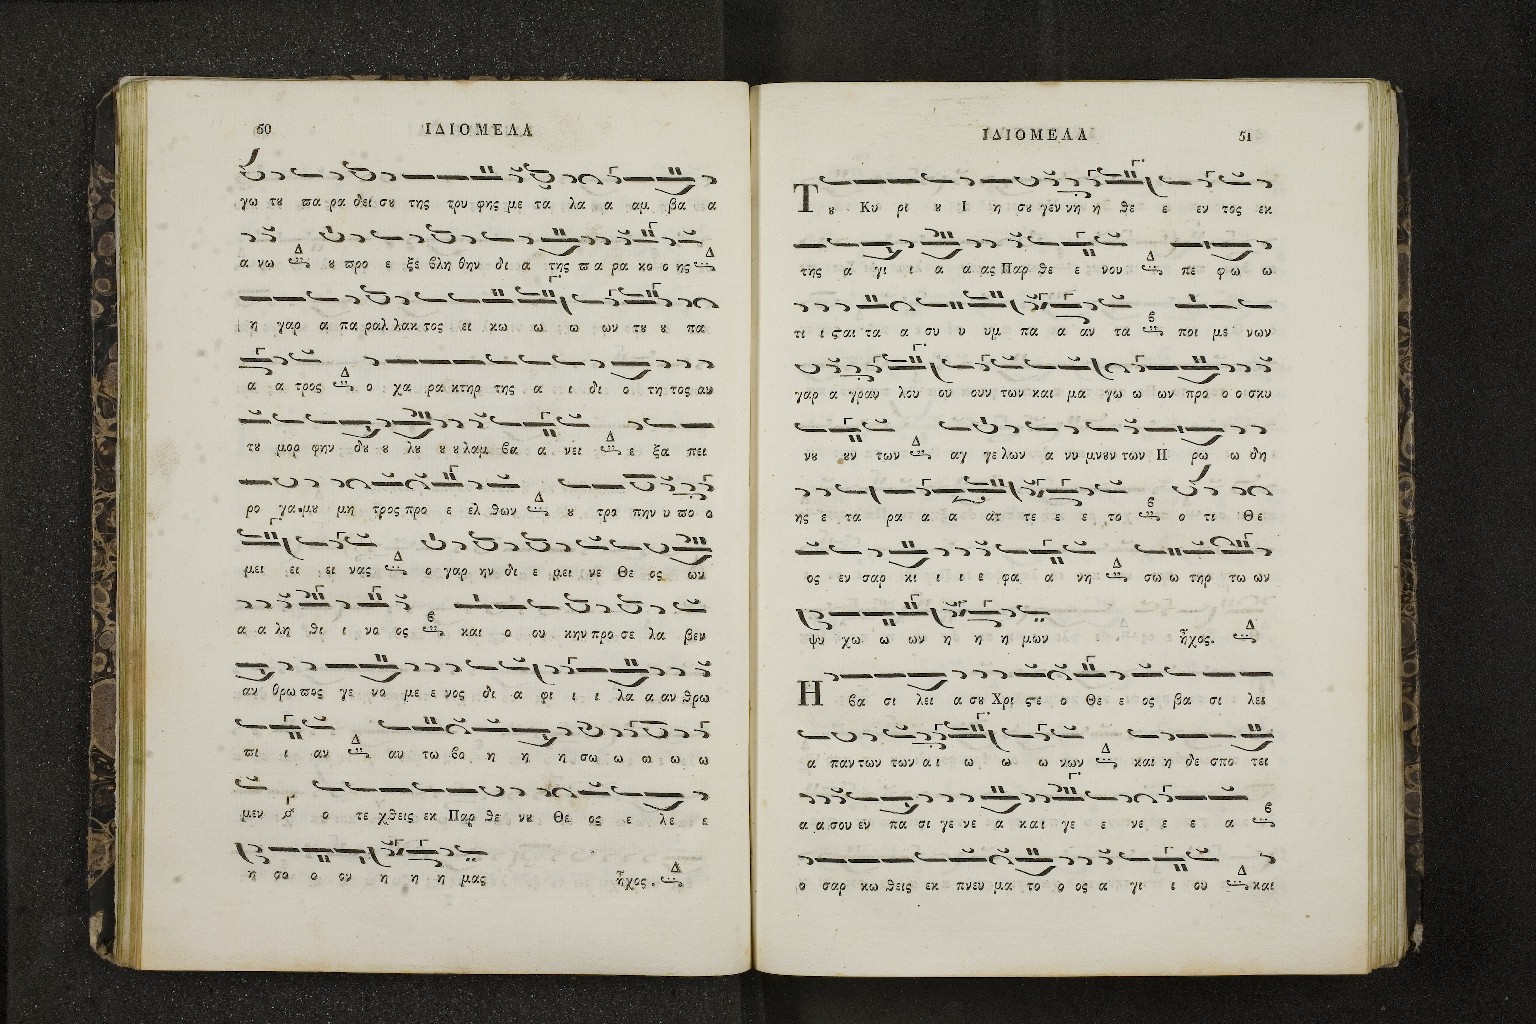 60 ΙΔΙΟΜΕΛΑ
γω τȣ πα ρα δει σȣ της τρυ φης με τα λα α αμ βα α
α νω Δ ȣ προ ε ξε βλη θην δι α της πα ρα κο ο ης Δ
η γαρ α πα ραλ λακ τος ει κω ω ω ων τȣ ȣ πα
α α τρος Δ ο χα ρα κτηρ της α ι δι ο τη τος αυ
τȣ μορ φην δȣ ȣ λȣ ȣ ȣ λαμ βα α νει Δ ε ξα πει
ρο γα μȣ μη τρος προ ε ελ θων Δ ȣ τρο πην υ πο ο
μει ει ει νας Δ ο γαρ ην δι ε μει νε Θε ος ων
α α λη θι ι νο ος ϐ και ο ουκ ην προ σε λα βεν
αν θρω πος γε νο με ε νος δι α φι ι ι λα α αν θρω
πι ι αν Δ αυ τω βο η η η σω ω ω ω ω
μεν ο τε χθεις εκ Παρ θε νȣ Θε ος ε λε ε
η σο ο ον η η η μας ἦχος. Δ
ΙΔΙΟΜΕΛΑ 51
Τȣ Κυ ρι ȣ Ι η σȣ γεν νη η θε ε εν τος εκ
της α γι ι α α ας Παρ θε ε νου Δ πε φω ω
τι ι ϛαι τα α συ υ υμ πα α αν τα ϐ ποι με νων
γαρ α γραυ λου ου ουν των και μα γω ω ων προ ο ο σκυ
νυ ȣν των Δ αγ γε λων α νυ μνουν των Η ρω ω δη
ης ε τα ρα α α ατ τε ε ε το ϐ ο τι Θε
ος εν σαρ κι ι ι ε φα α νη Δ σω ω τηρ τω ων
ψυ χω ω ων η η η μων ἦχος. Δ
Η βα σι λει α σȣ Χρι ϛε ο Θε ε ος βα σι λει
α παν των των αι ω ω ω νων Δ και η δε σπο τει
α α σου εν πα σι γε νε α και γε ε νε ε ε α ϐ
ο σαρ κω θεις εκ πνευ μα το ο ος α γι ι ου Δ και